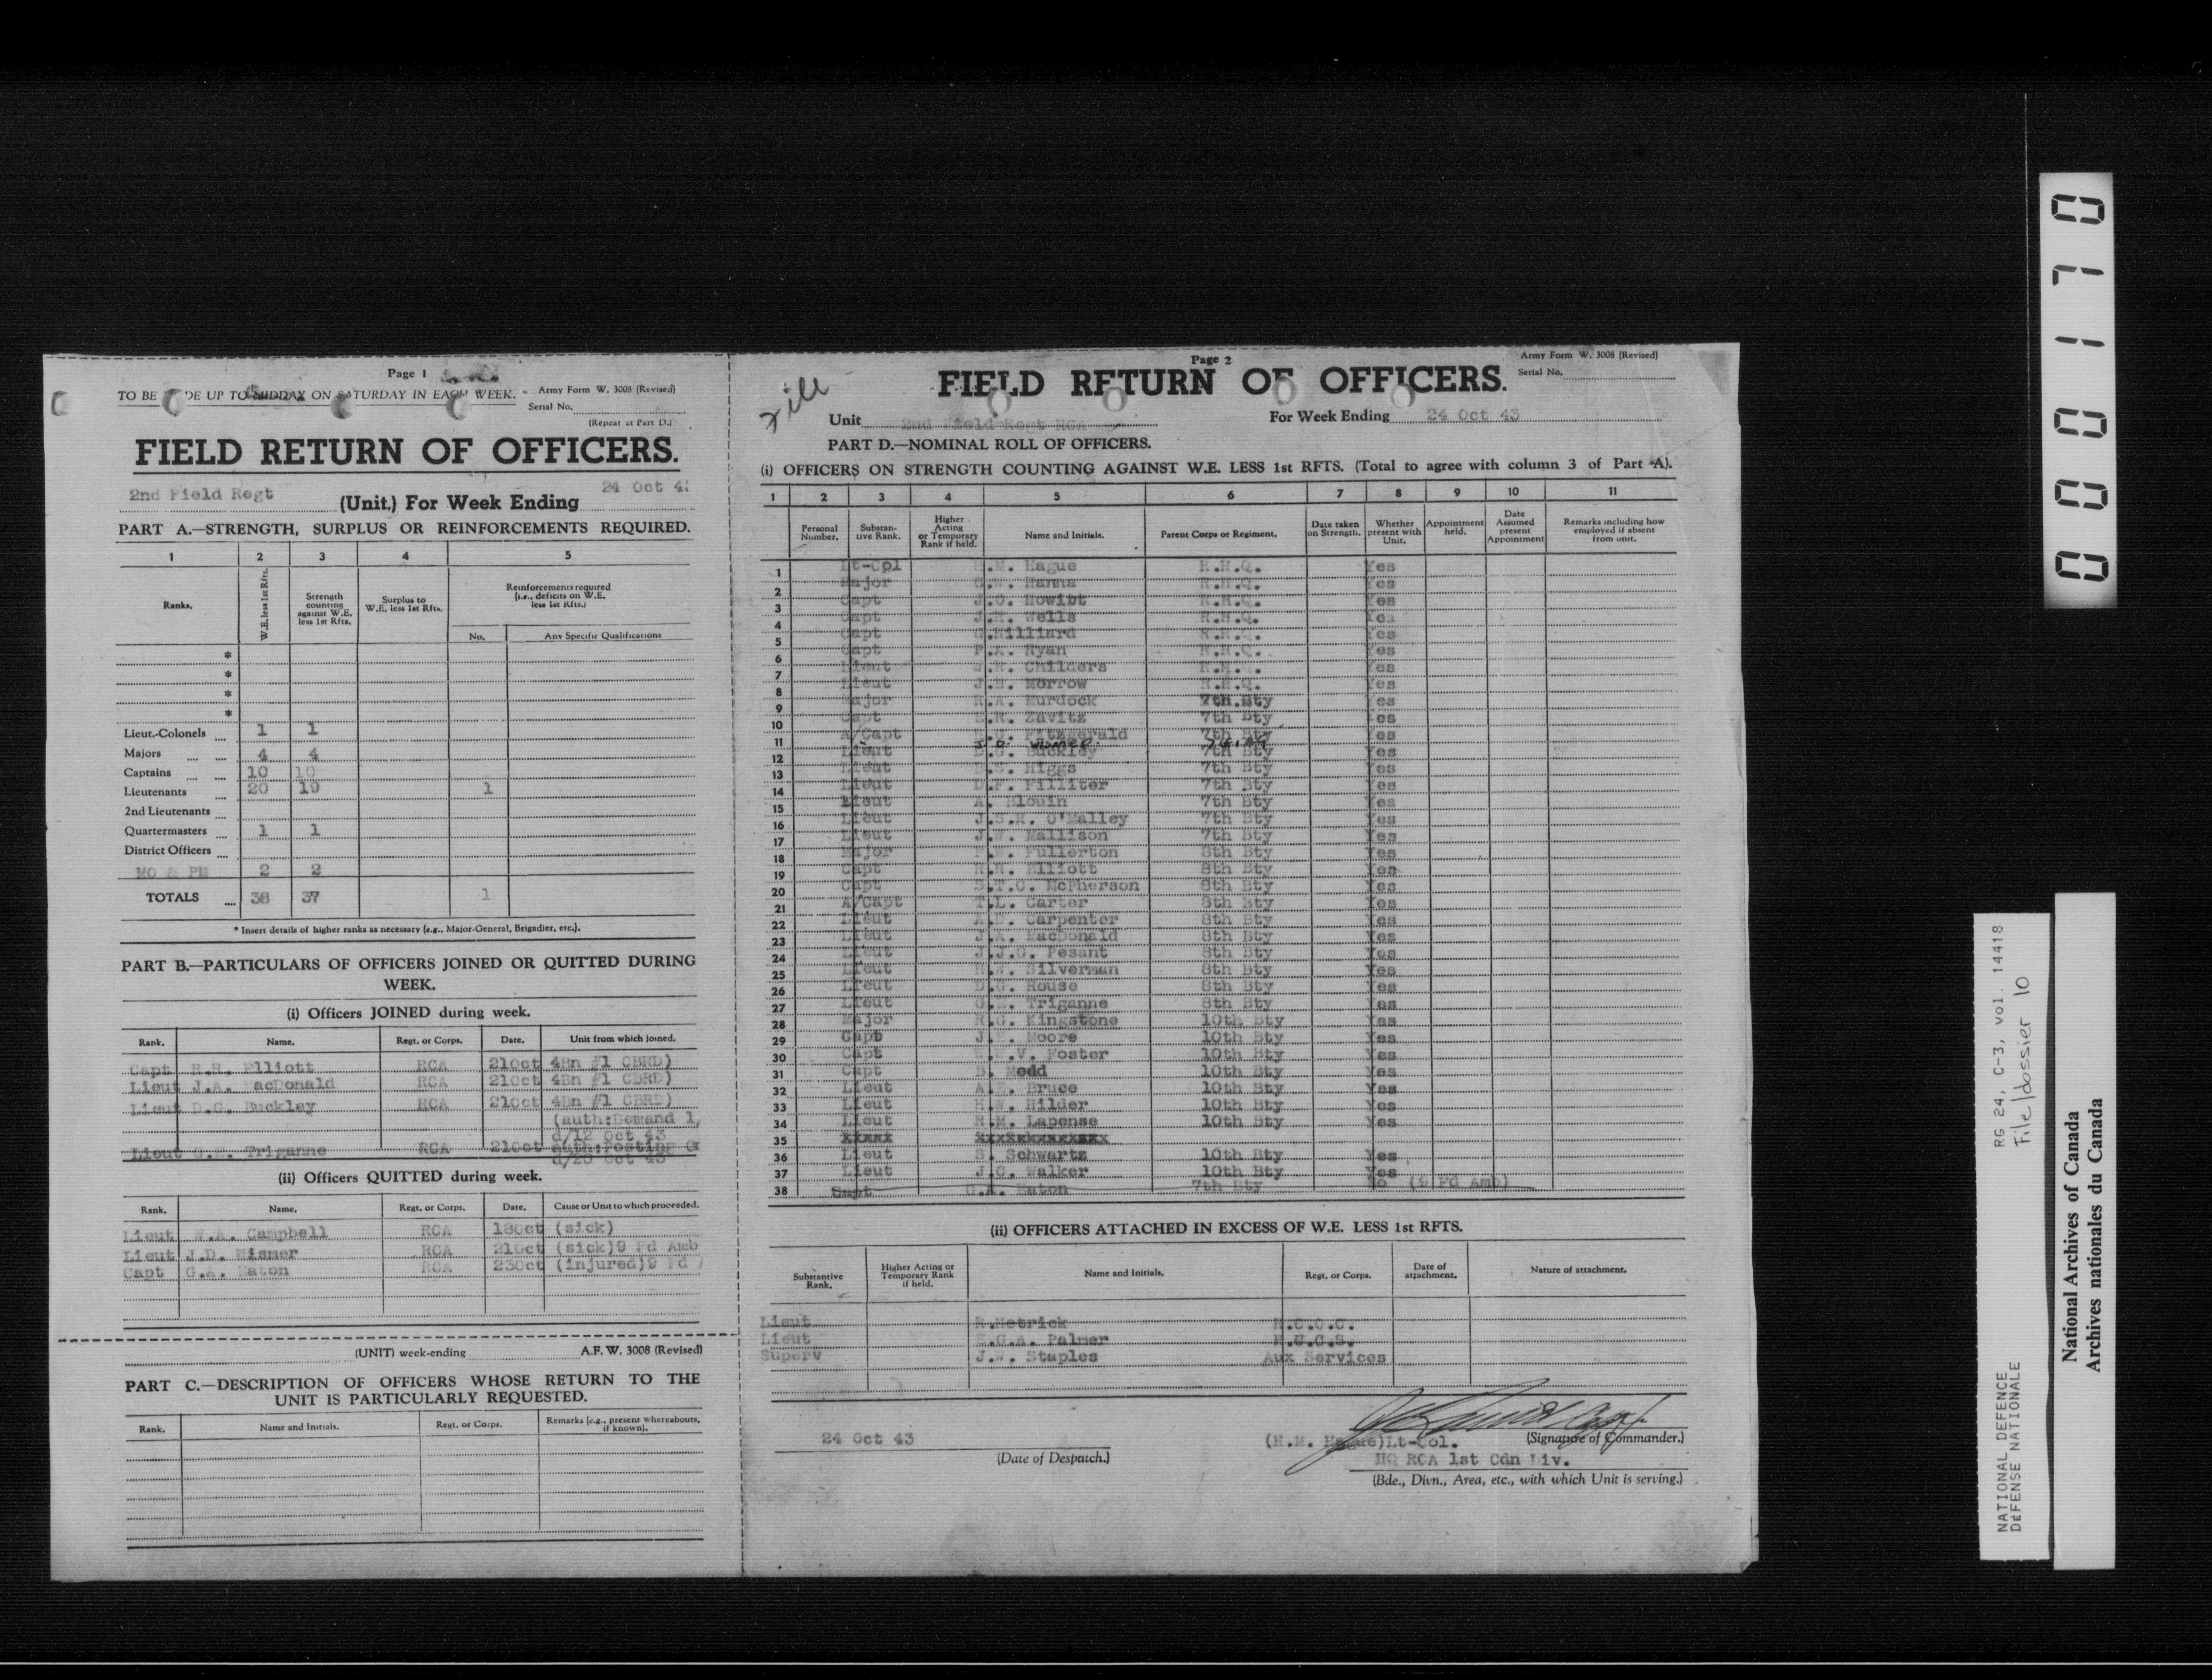 Page 1
TO BE DE UP TO MIDDAY ON SATURDAY IN EACH WEEK.
Army Form W. 3008 (Revised)
Serial No.
(Repeat at Part D.)
FIELD RETURN OF OFFICERS.
2nd Field Regt (Unit.) For Week Ending 24 Oct 43
PART A.—STRENGTH, SURPLUS OR REINFORCEMENTS REQUIRED.
1 2 3 4 5
Ranks. W.E. less 1st Rfts. Strength counting against W.E. less 1st Rfts. Surplus to W.E. less 1st Rfts. Reinforcements required (i.e., deficits on W.E. less 1st Rfts.)
No. Any Specific Qualifications
*
*
*
*
Lieut.-Colonels 1 1
Majors 4 4
Captains 10 10
Lieutenants 20 19 1
2nd Lieutenants
Quartermasters 1 1
District Officers
MO & PM 2 2
TOTALS 38 37 1
* Insert details of higher ranks as necessary (e.g., Major-General, Brigadier, etc.).
PART B.—PARTICULARS OF OFFICERS JOINED OR QUITTED DURING
WEEK.
(i) Officers JOINED during week.
Rank. Name. Regt. or Corps. Date. Unit from which joined.
Capt R.R. Elliott RCA 21Oct 4Bn #1 CBRD)
Lieut J.A. MacDonald RCA 21Oct 4Bn #1 CBRD)
Lieut D.G. Buckley RCA 21Oct 4Bn #1 CBRD)
(auth:Demand 1,
d/12 Oct 43
Lieut G.E. Triganne RCA 21Oct auth:Posting Or
d/20 Oct 43
(ii) Officers QUITTED during week.
Rank. Name. Regt. or Corps. Date. Cause or Unit to which proceeded.
Lieut W.A. Campbell RCA 18Oct (sick)
Lieut J.D. Wismer RCA 21Oct (sick)9 Fd Amb
Capt G.A. Eaton RCA 23Oct (injured)9 Fd
(UNIT) week-ending A.F.W. 3008 (Revised)
PART C.—DESCRIPTION OF OFFICERS WHOSE RETURN TO THE
UNIT IS PARTICULARLY REQUESTED.
Rank. Name and Initials. Regt. or Corps. Remarks (e.g., present whereabouts, if known).
Page 2
Army Form W. 3008 (Revised)
Serial No.
FIELD RETURN OF OFFICERS.
Unit 2nd Field Regt RCA For Week Ending 24 Oct 43
PART D.—NOMINAL ROLL OF OFFICERS.
(i) OFFICERS ON STRENGTH COUNTING AGAINST W.E. LESS 1st RFTS. (Total to agree with column 3 of Part A).
1 2 3 4 5 6 7 8 9 10 11
Personal Number. Substantive Rank. Higher Acting or Temporary Rank if held. Name and Initials. Parent Corps or Regiment. Date taken on Strength. Whether present with Unit. Appointment held. Date Assumed present Appointment Remarks including how employed if absent from unit.
1 Lt-Col H.M. Hague R.H.Q. Yes
2 Major Hanna R.H.Q. Yes
3 Capt J.O. Howibt R.H.Q. Yes
4 Capt J.H. Wells R.H.Q. Yes
5 Capt Hilliard R.H.Q. Yes
6 Capt Ryan R.H.Q. Yes
7 Lieut Childers R.H.Q. Yes
8 Lieut Morrow R.H.Q. Yes
9 Major Murdock 7th Bty Yes
10 Capt Zavitz 7th Bty Yes
11 A/Capt Fitzgerald 7th Bty Yes
12 Lieut D.G. Buckley 7th Bty Yes
13 Lieut Higgs 7th Bty Yes
14 Lieut D.F. Filliter 7th Bty Yes
15 Lieut A. Blouin 7th Bty Yes
16 Lieut J.S.R. O'Malley 7th Bty Yes
17 Lieut J.W. Mallison 7th Bty Yes
18 Major Fullerton 8th Bty Yes
19 Capt R.R. Elliott 8th Bty Yes
20 Capt McPherson 8th Bty Yes
21 A/Capt T.L. Carter 8th Bty Yes
22 Lieut Carpenter 8th Bty Yes
23 Lieut J.A. MacDonald 8th Bty Yes
24 Lieut J.J.G. Pesant 8th Bty Yes
25 Lieut Silverman 8th Bty Yes
26 Lieut D.G. Rouse 8th Bty Yes
27 Lieut G.E. Triganne 8th Bty Yes
28 Major R.G. Kingstone 10th Bty Yes
29 Capt J.E. Moore 10th Bty Yes
30 Capt Foster 10th Bty Yes
31 Capt B. Medd 10th Bty Yes
32 Lieut Bruce 10th Bty Yes
33 Lieut H.W. Hilder 10th Bty Yes
34 Lieut R.M. Lapense 10th Bty Yes
35
36 Lieut S. Schwartz 10th Bty Yes
37 Lieut J.C. Walker 10th Bty Yes
38 Capt G.A. Eaton 7th Bty No (9 Fd Amb)
(ii) OFFICERS ATTACHED IN EXCESS OF W.E. LESS 1st RFTS.
Substantive Rank. Higher Acting or Temporary Rank if held. Name and Initials. Regt. or Corps. Date of attachment. Nature of attachment.
Lieut R.Hetrick R.C.O.C.
Lieut Palmer R.C.C.S.
Superv J.W. Staples Aux Services
24 Oct 43
(Date of Despatch.)
(H.M. Hague)Lt-Col. (Signature of Commander.)
HQ RCA 1st Cdn Div.
(Bde., Divn., Area, etc., with which Unit is serving.)
000170
NATIONAL DEFENCE RG 24, C-3, vol. 14418
DÉFENSE NATIONALE File/dossier 10
National Archives of Canada
Archives nationales du Canada